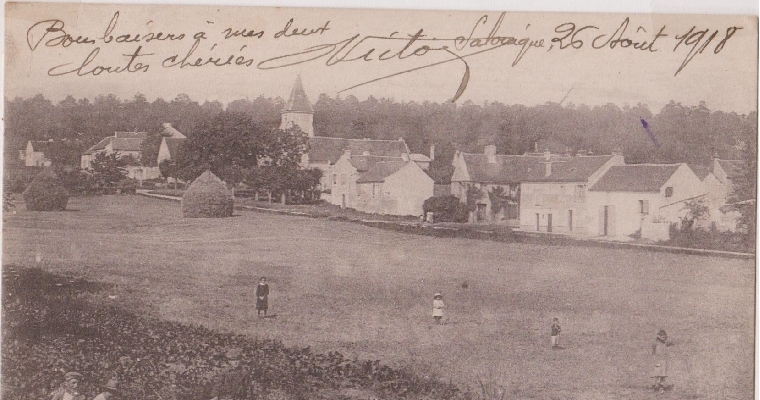 Bons baisers à mes deux
toutes chéries Victor
Salonique, 26 Août 1918